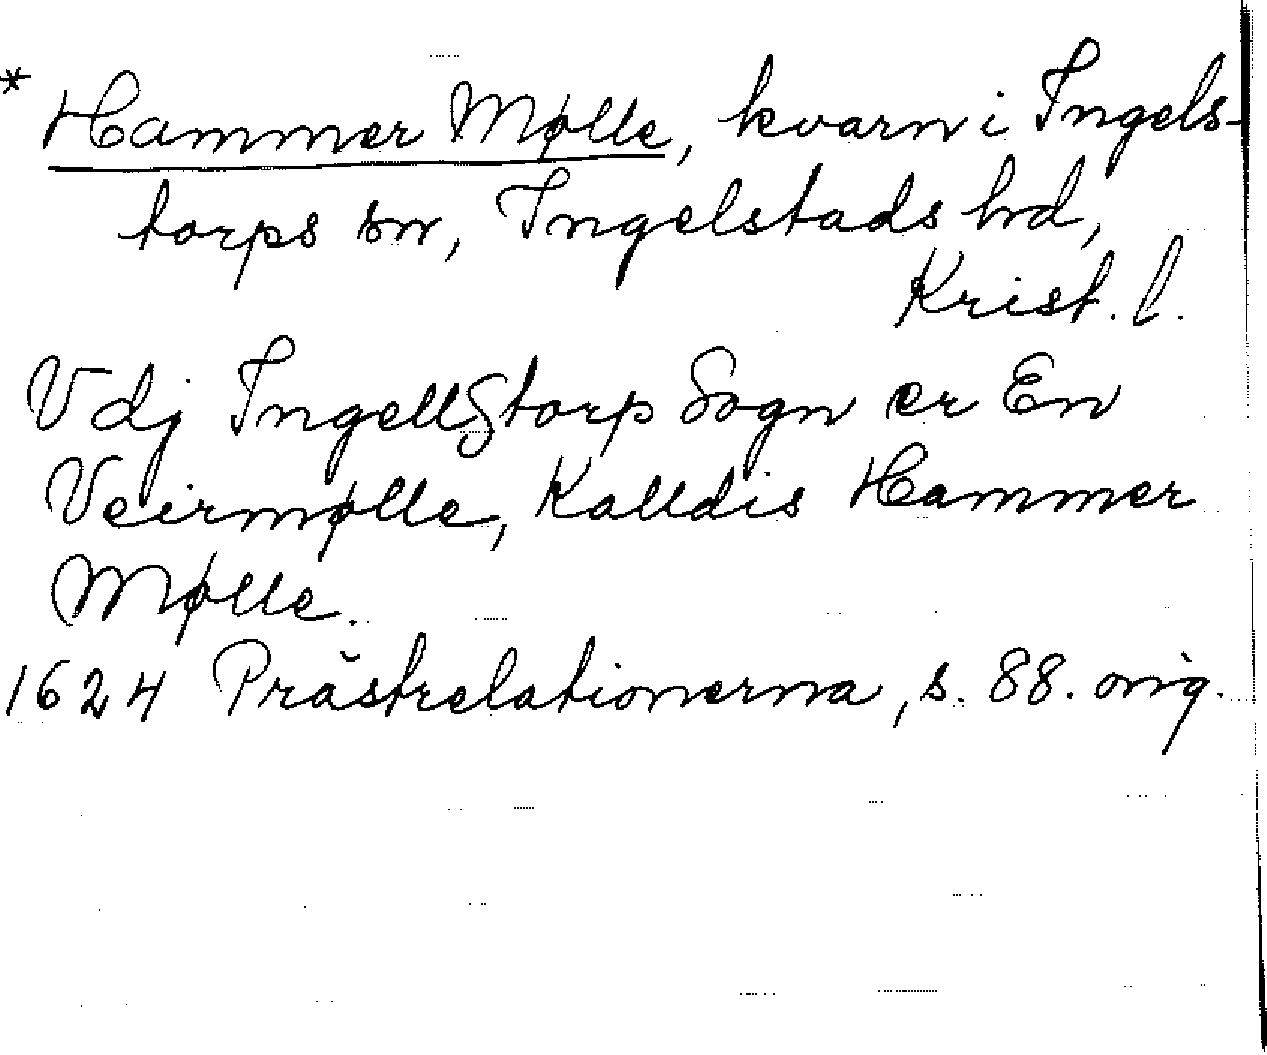 * Hammer Mølle, kvarn i Ingels-
torps sn, Ingelstads hd,
Krist. l.
Vdj Ingellßtorp Sogn er En
Veirmølle, Kalldis Hammer
Mølle.
1624 Prästrelationerna, s. 88. orig.